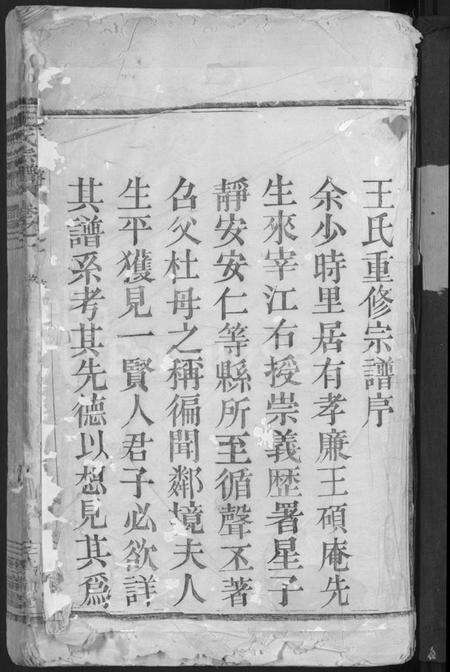 王氏重修宗譜序
余少時里居有孝廉王碩庵先
生來宰江右授崇義歷署星子
靜安安仁等縣所至循聲丕著
召父杜母之稱徧聞鄰境夫人
生平獲見一賢人君子必欲詳
其譜系考其先德以想見其爲